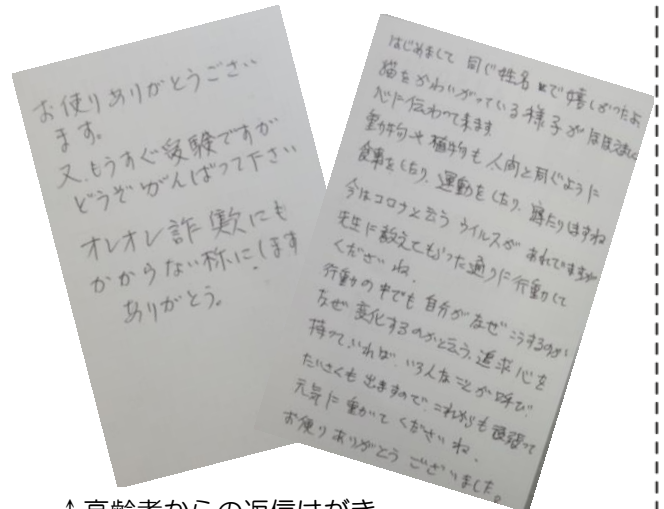 お便りありがとうござい
ます。
又、もうすぐ受験ですが
どうぞがんばって下さい
オレオレ詐欺にも
かからない様にします
ありがとう。
はじめまして 同じ姓名で嬉しかったよ
猫をかわいがっている様子がほほえましく
心に伝わって来ます
動物や植物も人間と同じように
食事をしたり、運動をしたり、寝たりしますね
今はコロナと云うウイルスがあれていますが
先生に教えてもらった通りに行動して
くださいね。
行動の中でも自分がなぜこうするのか
なぜ変化するのかと云う、追求心を
持っていれば、いろんなことが
たいさくも出ますので、これからも頑張って
元気に動いてくださいね。
お便りありがとうございました。
↑高齢者からの返信はがき